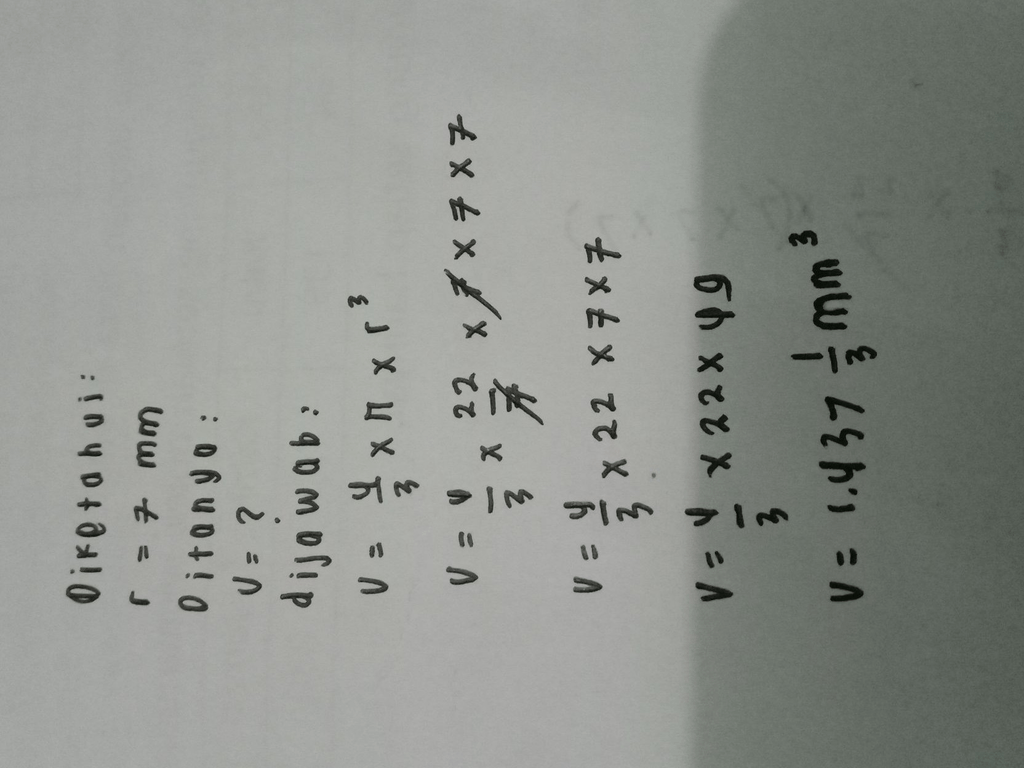 Diketahui:
r = 7 mm
Ditanya:
V = ?
dijawab:
V = 4/3 x π x r³
V = 4/3 x 22/7 x 7 x 7 x 7
V = 4/3 x 22 x 7 x 7
V = 4/3 x 22 x 49
V = 1.437 1/3 mm³